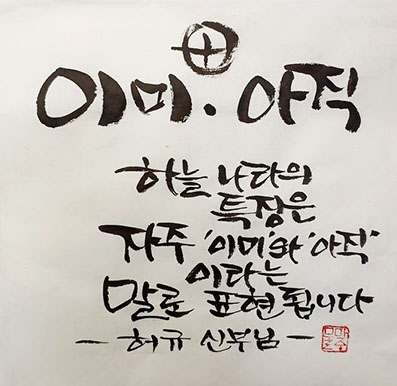 이미 · 아직
하늘 나라의
특징은
자주 '이미'와 '아직'
이라는
말로 표현됩니다
- 허규 신부님 -